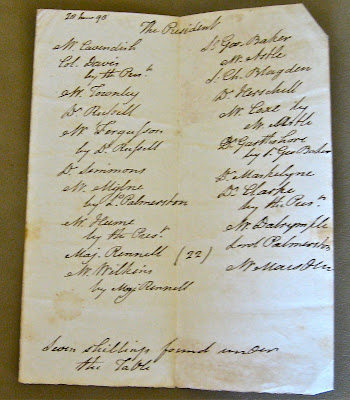 20 June 90
The President
Mr. Cavendish
Col. Davis
by the Presᵗ.
Mr. Townley
Dr Russell
Mr Fergusson
by Dr. Russell
Dr Simmons
Mr. Mylne
by Ld. Palmerston
Mr. Hume
by the Presᵗ.
Maj. Rennell (22)
Mr. Wilkins
by Maj. Rennell
Sr. Geo. Baker
Mr. Astle
Sr. Ch. Blagden
Dr Herschell
Mr. Coxe by
Mr. Astle
Dr Garthshore
by Sr. Geo Baker
Dr. Maskelyne
Dr. Clarke
by the Presᵗ.
Mr. Dalrymple
Lord Palmerston
Mr Marsden
Seven shillings found under
the Table